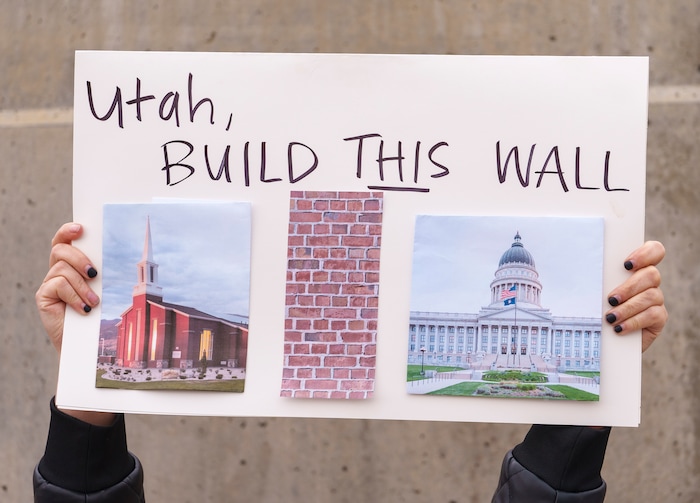 Utah,
BUILD THIS WALL